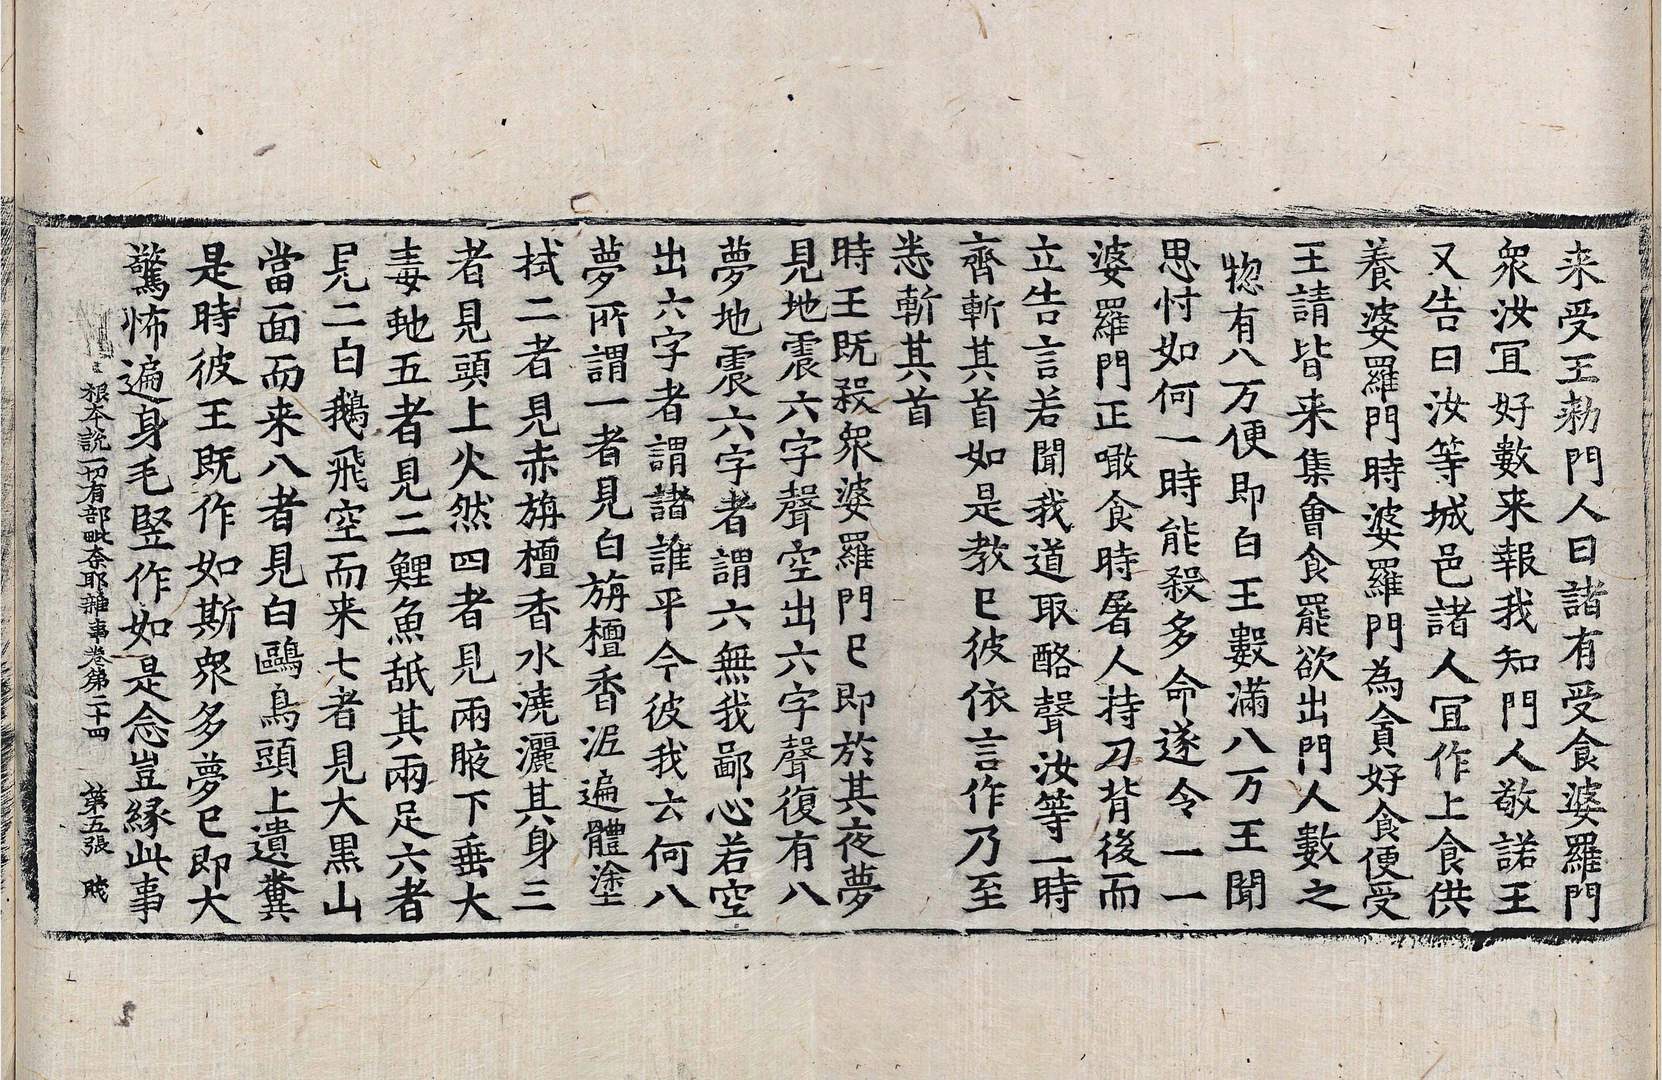 来受王勑門人曰諸有受食婆羅門
衆汝冝好數来報我知門人敬諾王
又告曰汝等城邑諸人冝作上食供
養婆羅門時婆羅門為貪好食便受
王請皆来集會食罷欲出門人數之
惣有八万便即白王數滿八万王聞
思忖如何一時能殺多命遂令一一
婆羅門正噉食時屠人持刀背後而
立告言若聞我道取酪聲汝等一時
齊斬其首如是教已彼依言作乃至
悉斬其首
時王既殺衆婆羅門已即於其夜夢
見地震六字聲空出六字聲復有八
夢地震六字者謂六無我鄙心若空
出六字者謂諸誰平今彼我云何八
夢所謂一者見白旃檀香泥遍體塗
拭二者見赤旃檀香水澆灑其身三
者見頭上火然四者見兩腋下垂大
毒虵五者見二鯉魚舐其兩足六者
見二白鵝飛空而来七者見大黒山
當面而来八者見白鷗鳥頭上遺糞
是時彼王既作如斯衆多夢已即大
驚怖遍身毛竪作如是念豈縁此事
根夲說一切有部毗奈耶雜事卷第二十四 第五張 賤